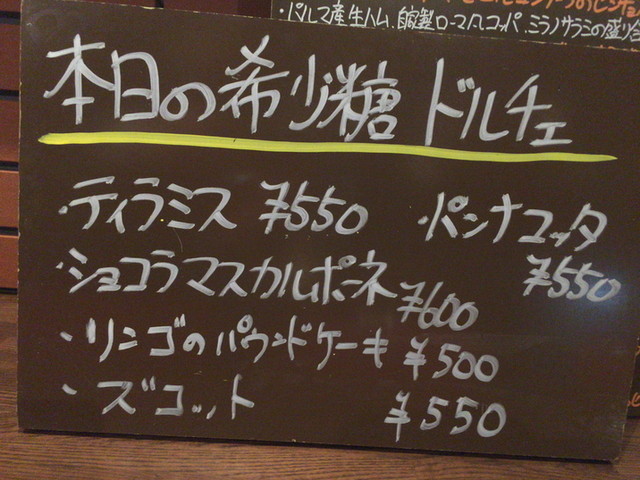 ・パルマ産生ハム、自家製ロースハム、コッパ、ミラノサラミの盛り合
本日の希少糖 ドルチェ
・ティラミス ¥550 ・パンナコッタ
¥550
・ショコラマスカルポーネ ¥600
・リンゴのパウンドケーキ ¥500
・ズコット ¥550